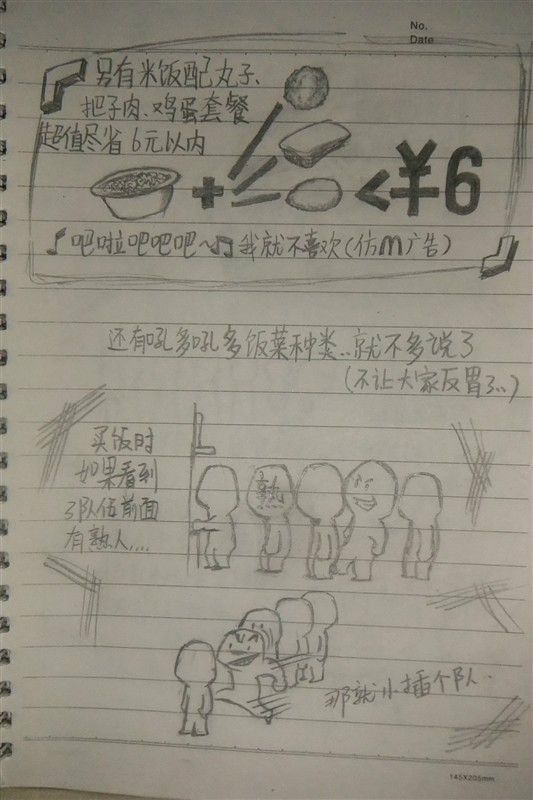 No.
Date
另有米饭配丸子、
把子肉、鸡蛋套餐
超值尽省6元以内
+ < ¥6
♪吧啦吧吧吧~♫我就不喜欢(仿m广告)
还有吼多吼多饭菜种类..就不多说了
(不让大家反胃了..)
买饭时
如果看到
了队伍前面
有熟人....
熟
那就小插个队.
145X205mm